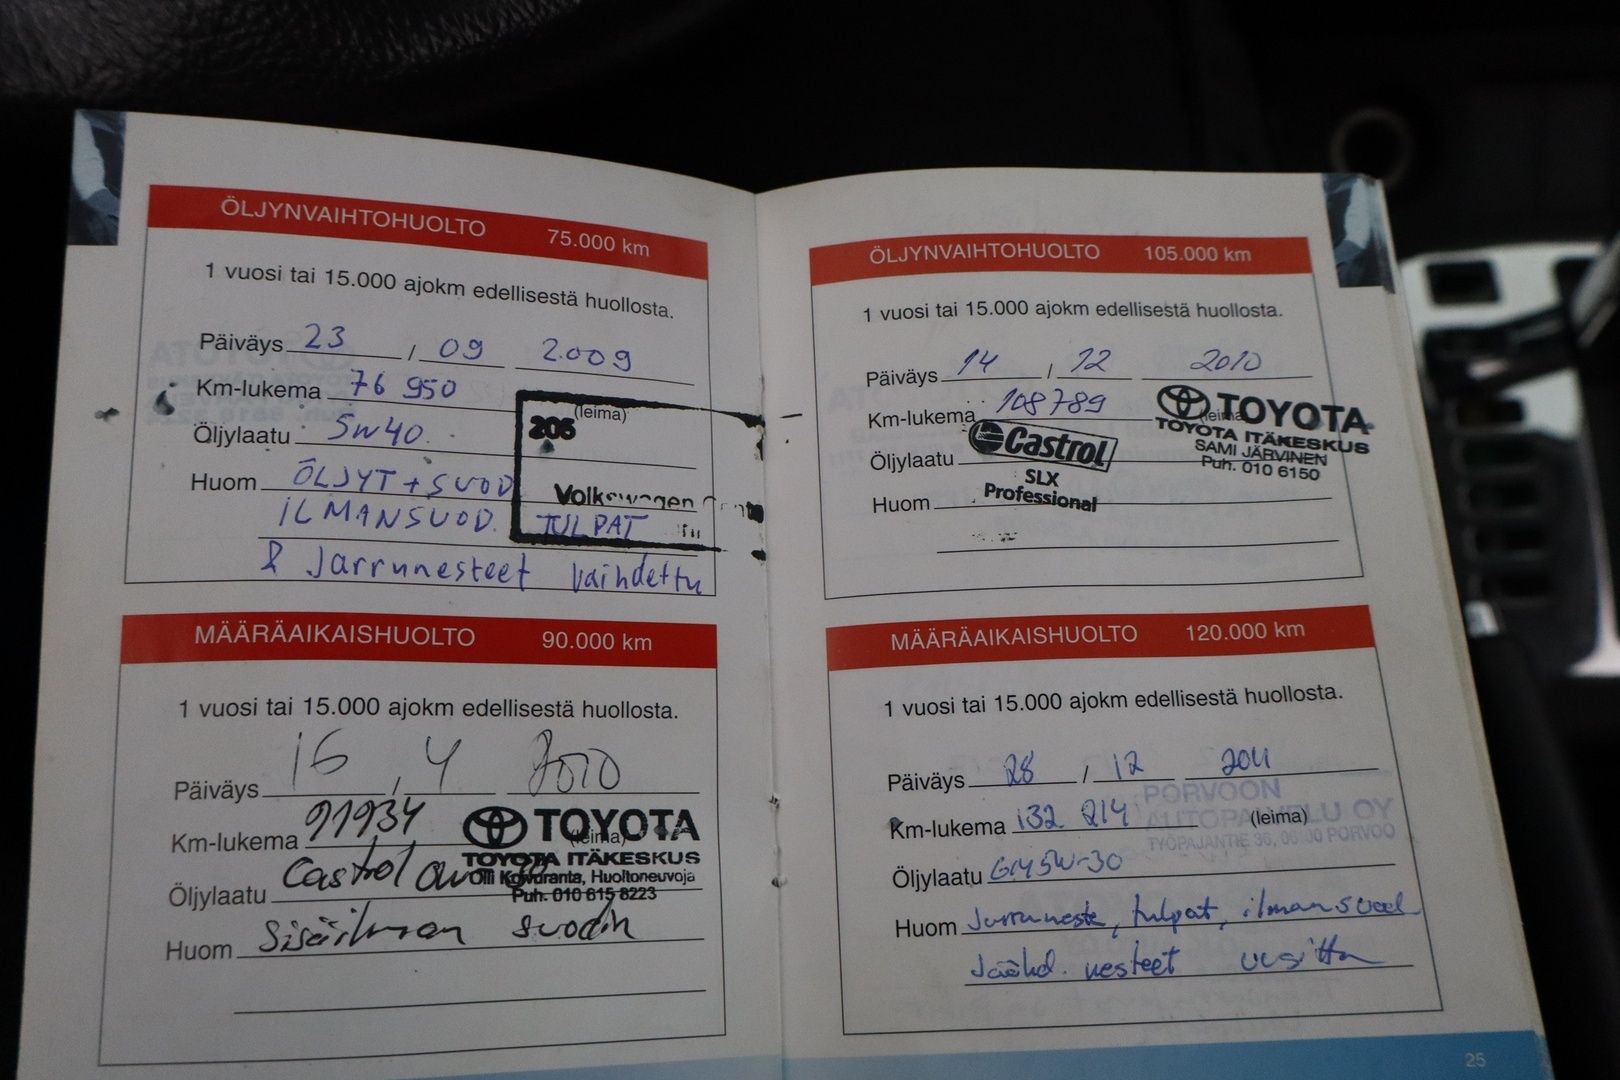 ÖLJYNVAIHTOHUOLTO 75.000 km
1 vuosi tai 15.000 ajokm edellisestä huollosta.
Päiväys 23 / 09 2009
Km-lukema 76 950
(leima)
206
Öljylaatu 5W40.
Huom ÖLJYT + SUOD
Volkswagen
ILMANSUOD. TULPAT
& Jarrunesteet vaihdettu
MÄÄRÄAIKAISHUOLTO 90.000 km
1 vuosi tai 15.000 ajokm edellisestä huollosta.
Päiväys 16 / 4 2010
Km-lukema 91934
TOYOTA
(leima)
TOYOTA ITÄKESKUS
Huoltoneuvoja
Puh. 010 615 8223
Öljylaatu Castrol
Huom Sisäilman suodin
ÖLJYNVAIHTOHUOLTO 105.000 km
1 vuosi tai 15.000 ajokm edellisestä huollosta.
Päiväys 14 / 12 2010
Km-lukema 108789
TOYOTA
(leima)
TOYOTA ITÄKESKUS
SAMI JÄRVINEN
Puh. 010 6150
Öljylaatu Castrol
SLX
Professional
Huom
MÄÄRÄAIKAISHUOLTO 120.000 km
1 vuosi tai 15.000 ajokm edellisestä huollosta.
Päiväys 28 / 12 2011
Km-lukema 132 214 (leima)
PORVOON
AUTOPALVELU OY
TYÖPAJANTIE 36, PORVOO
Öljylaatu GM5W-30
Huom Jarruneste, tulpat, ilmansuod
Jäähd. nesteet uusittu
25